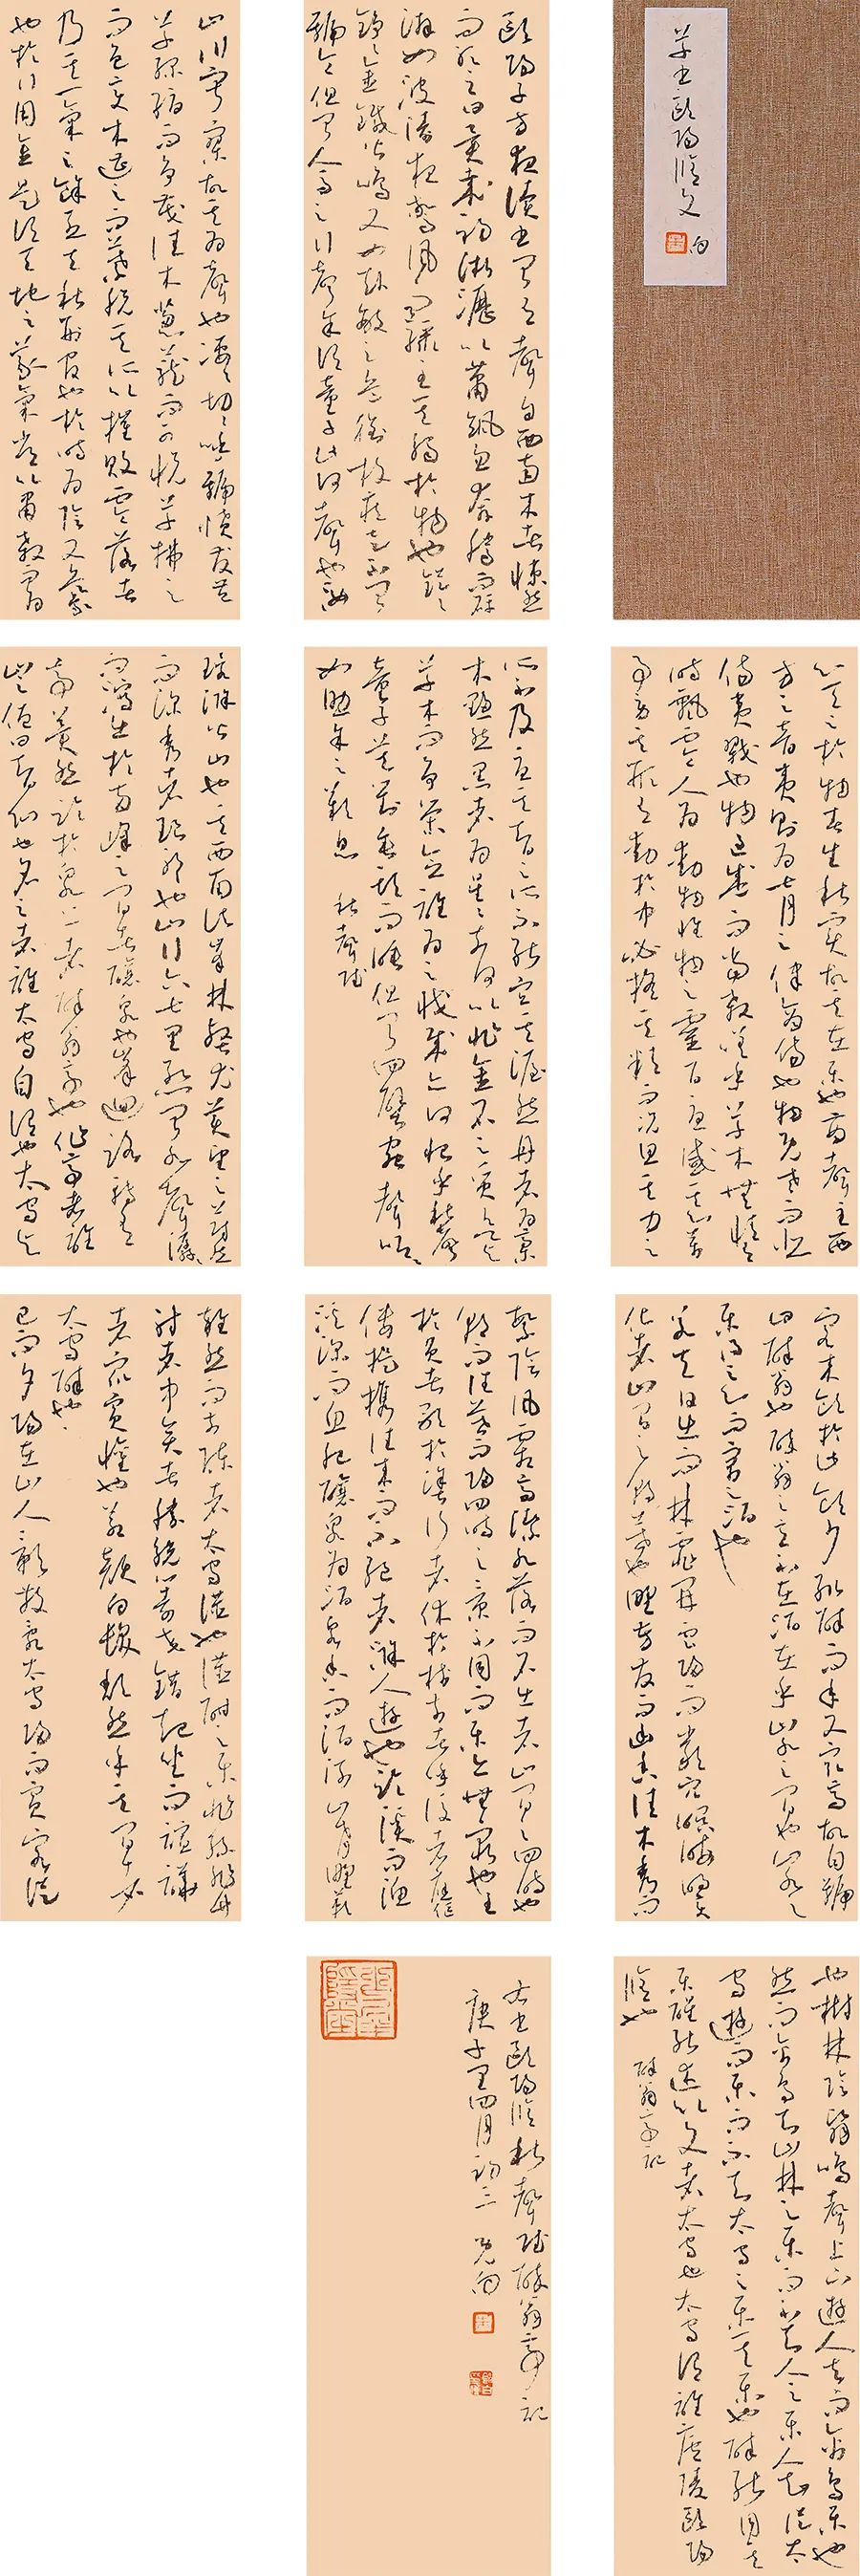 草書歐陽脩文
歐陽子方夜讀書聞有聲自西南來者悚然
而聽之曰異哉初淅瀝以蕭颯忽奔騰而砰
湃如波濤夜驚風雨驟至其觸於物也鏦鏦
錚錚金鐵皆鳴又如赴敵之兵銜枚疾走不聞
號令但聞人馬之行聲余謂童子此何聲也汝
山川寂寥故其為聲也淒淒切切呼號憤發豐
草綠縟而爭茂佳木蔥蘢而可悅草拂之
而色變木遭之而葉脫其所以摧敗零落者
乃其一氣之餘烈夫秋刑官也於時為陰又兵象
也於行用金是謂天地之義氣常以肅殺而為
心天之於物春生秋實故其在樂也商聲主西
方之音夷則為七月之律商傷也物既老而悲
傷夷戮也物過盛而當殺嗟乎草木無情有
時飄零人為動物惟物之靈百憂感其心萬
事勞其形有動於中必搖其精而況思其力之
所不及憂其智之所不能宜其渥然丹者為槁
木黟然黑者為星星奈何以非金石之質欲與
草木而爭榮念誰為之戕賊亦何恨乎秋聲
童子莫對垂頭而睡但聞四壁蟲聲唧唧
如助余之歎息 秋聲賦
環滁皆山也其西南諸峯林壑尤美望之蔚然
而深秀者琅琊也山行六七里漸聞水聲潺潺
而瀉出於兩峰之間者釀泉也峯迴路轉有
亭翼然臨於泉上者醉翁亭也作亭者誰
山之僧曰智仙也名之者誰太守自謂也太守與
客來飲於此飲少輒醉而年又最高故自號
曰醉翁也醉翁之意不在酒在乎山水之間也山水之
樂得之心而寓之酒也
若夫日出而林霏開雲歸而巖穴暝晦明變
化者山間之朝暮也野芳發而幽香佳木秀而
繁陰風霜高潔水落而石出者山間之四時也
朝而往暮而歸四時之景不同而樂亦無窮也至
於負者歌於塗行者休於樹前者呼後者應傴
僂提攜往來而不絕者滁人遊也臨溪而漁
溪深而魚肥釀泉為酒泉香而酒洌山肴野蔌
雜然而前陳者太守宴也宴酣之樂非絲非竹
射者中弈者勝觥籌交錯起坐而諠譁
者眾賓懽也蒼顏白髮頹然乎其間者
太守醉也
已而夕陽在山人影散亂太守歸而賓客從
也樹林陰翳鳴聲上下遊人去而禽鳥樂也
然而禽鳥知山林之樂而不知人之樂人知從太
守遊而樂而不知太守之樂其樂也醉能同其
樂醒能述以文者太守也太守謂誰廬陵歐陽
脩也 醉翁亭記
右書歐陽脩秋聲賦醉翁亭記
庚子閏四月初三